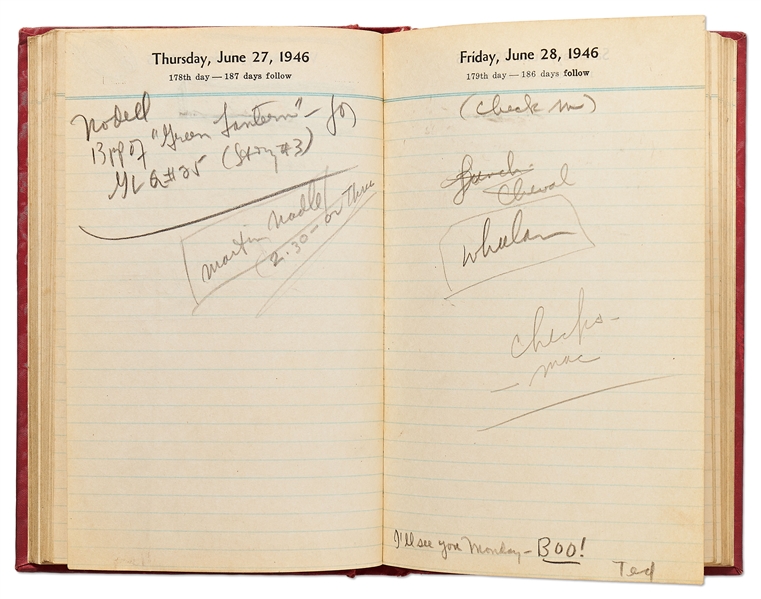 Thursday, June 27, 1946
178th day — 187 days follow
Nodell
13 pp of "Green Lantern" — for
GLQ #25 (Story #3)
Martin Nadle
2:30 — or Three
Friday, June 28, 1946
179th day — 186 days follow
(Check in)
Lunch
Cheval
Whelan
Checks —
— Mac
I'll see you Monday — BOO!
Ted